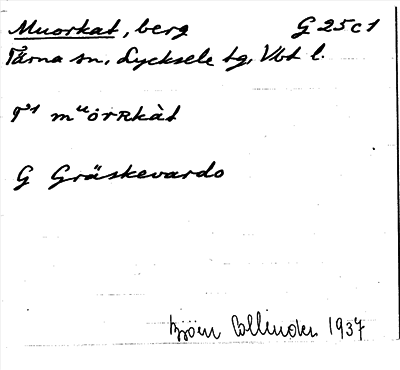 Muorkat, berg G 25 c 1
Tärna sn, Lycksele lg, Vbt l.
mᵘörʀkàt
G Gräskevardo
Björn Collinder 1937